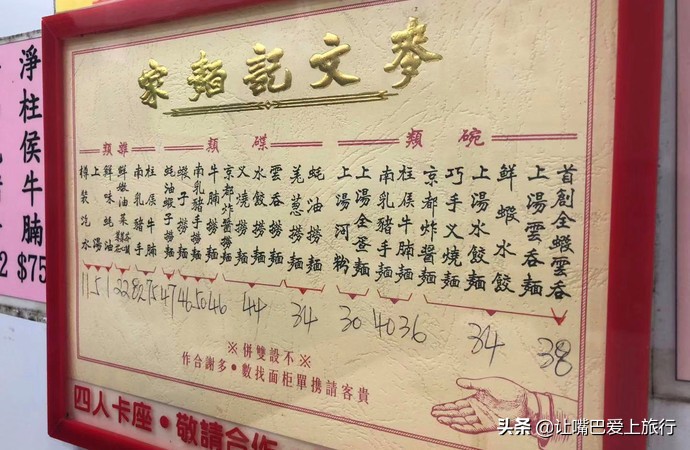 麥文記麵家
碗類
首創全蝦雲吞
上湯雲吞麵
鮮蝦水餃
上湯水餃麵
巧手叉燒麵
京都炸醬麵
柱侯牛腩麵
南乳豬手麵
上湯河粉
38
34
36
40
30
碟類
蠔油撈麵
羌葱撈麵
雲吞撈麵
水餃撈麵
叉燒撈麵
京都炸醬撈麵
牛腩撈麵
南乳豬手撈麵
蝦子撈麵
蠔油蝦子撈麵
34
44
46
50
46
47
雜類
柱侯牛腩
南乳豬手
鮮味蠔油
上湯
樽裝汽水
75
11
※不設雙併※
貴客請携單柜面找數•多謝合作
四人卡座•敬請合作
淨柱侯牛腩
$75
2
头条 @让嘴巴爱上旅行